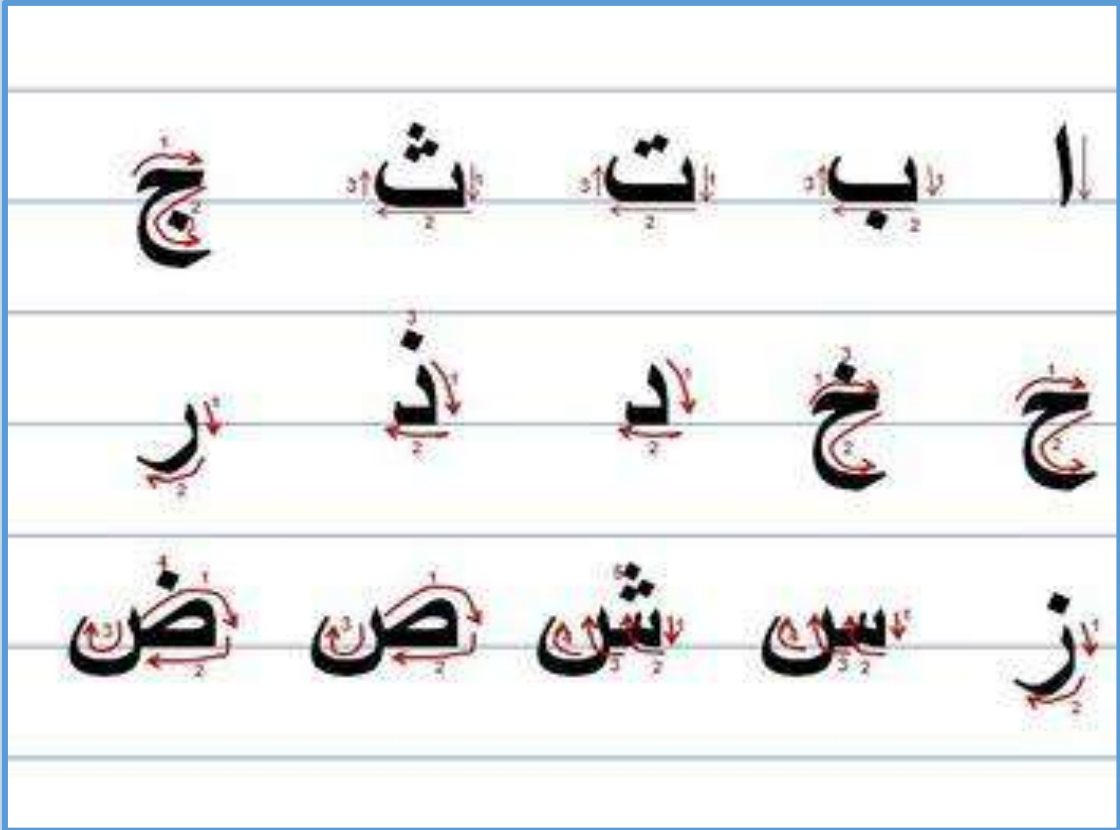 ا ب ت ث ج
ح خ د ذ ر
ز س ش ص ض